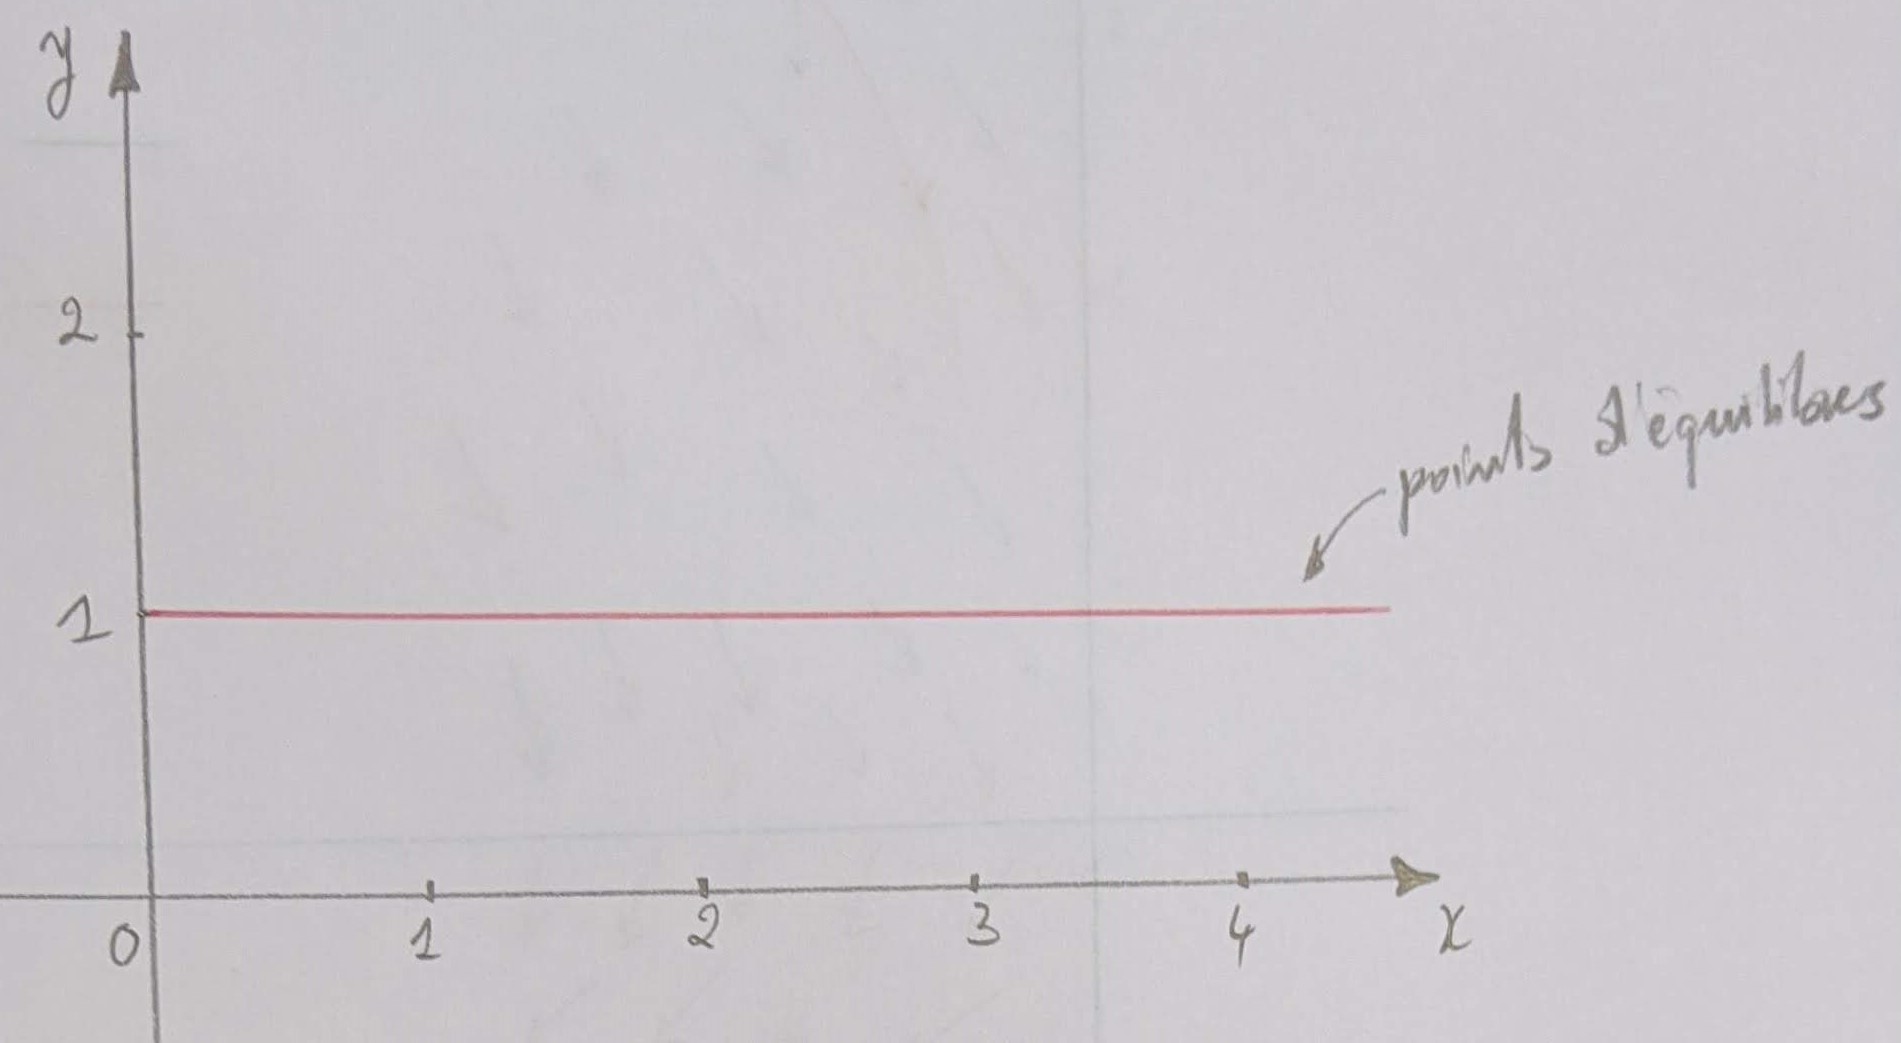 y
2
points d'équilibres
1
0 1 2 3 4 x